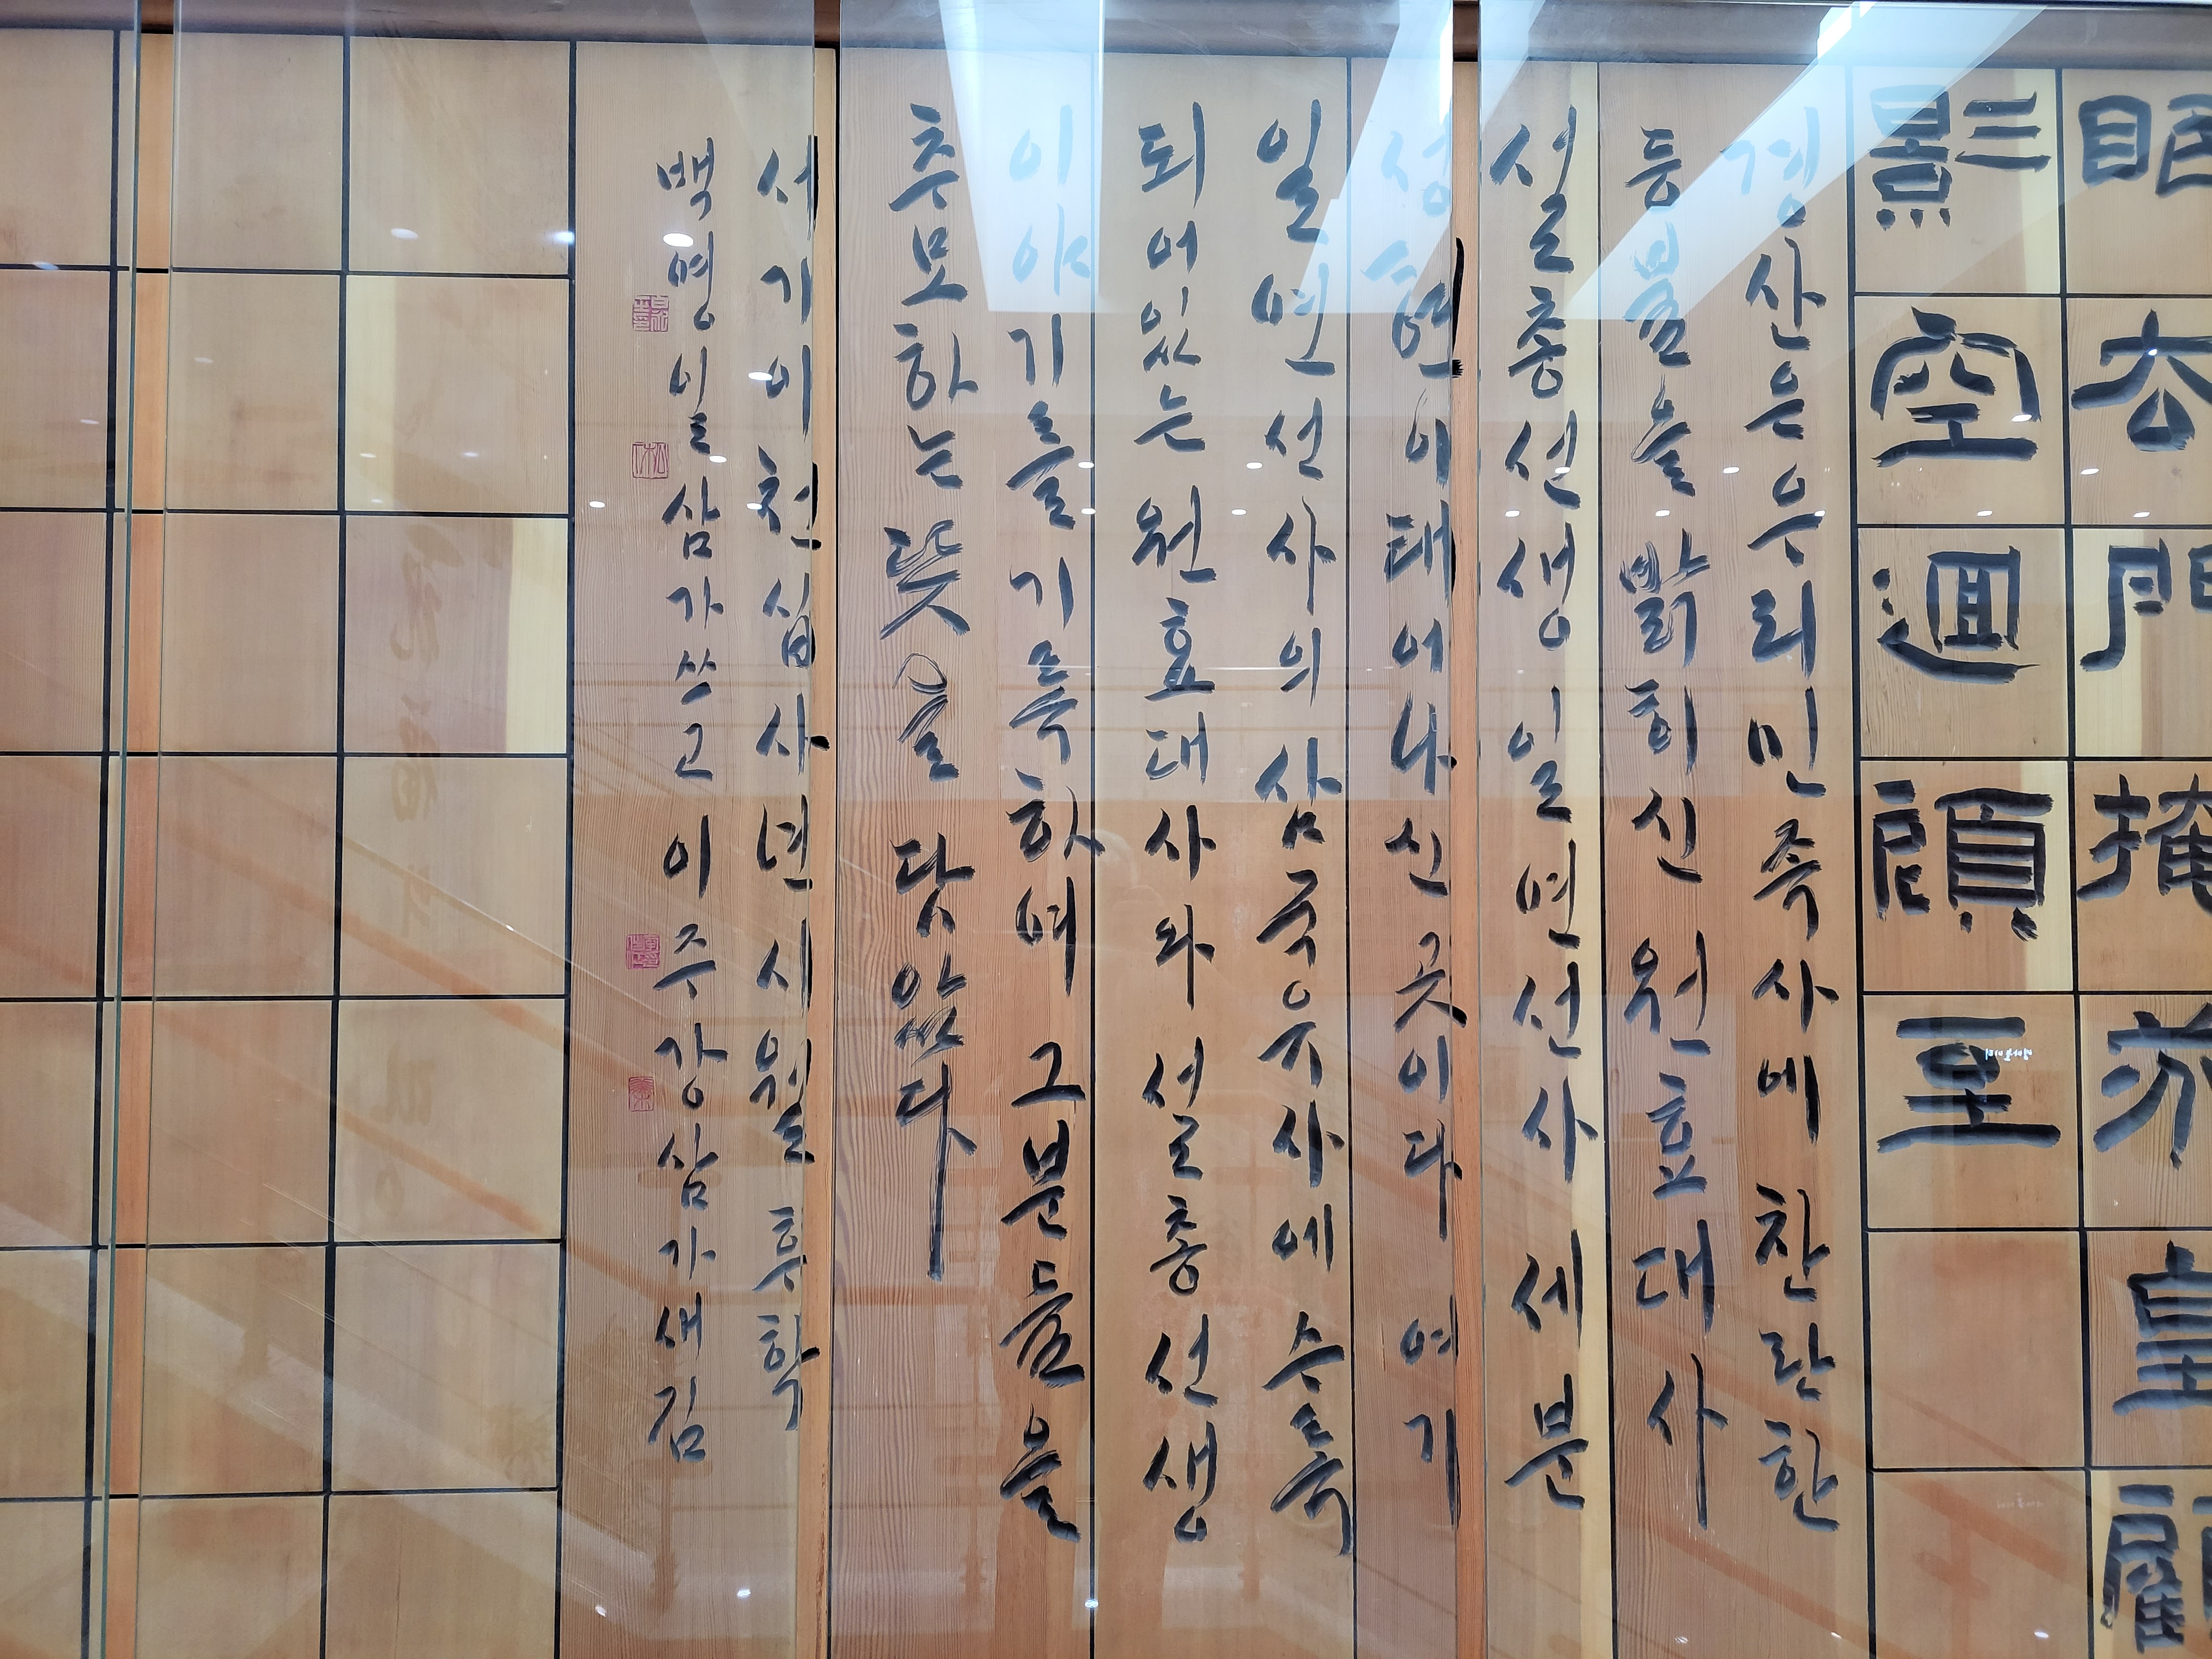 門掩皇顧
影空迴顧至
경산은 우리 민족사에 찬란한
등불을 밝히신 원효대사
설총선생 일연선사 세분
성현이 태어나신 곳이다 여기
일연선사의 삼국유사에 수록
되어있는 원효대사와 설총선생
이야기를 기록하여 그분들을
추모하는 뜻을 담았다
서기 이천십사년 시월 후학
백영일 삼가 쓰고 이주강 삼가 새김